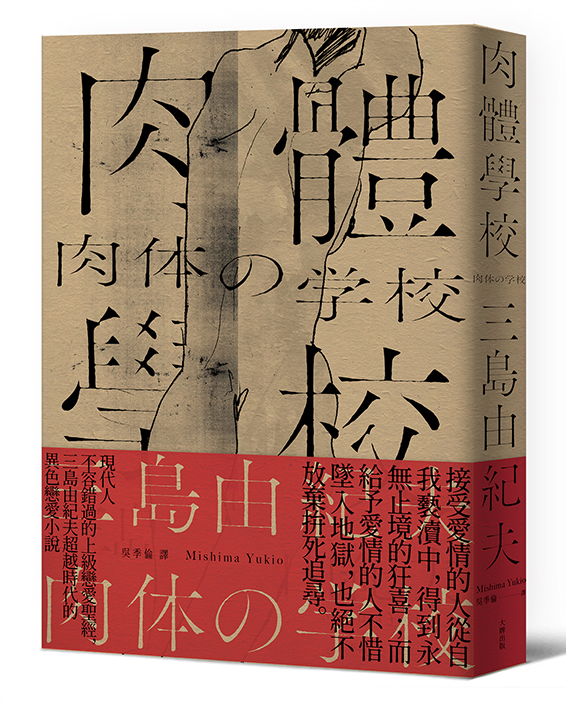 肉體
肉体の学校
學校
三島由紀夫
吳季倫 譯
Mishima Yukio
肉体の学校
接受愛情的人從自
我褻瀆中，得到永
無止境的狂喜；而
給予愛情的人不惜
墜入地獄，也絕不
放棄拼死追尋。
現代人
不容錯過的上級戀愛聖經，
三島由紀夫超越時代的
異色戀愛小說
肉體學校
肉体の学校
三島由紀夫
Mishima Yukio
吳季倫 譯
大牌出版